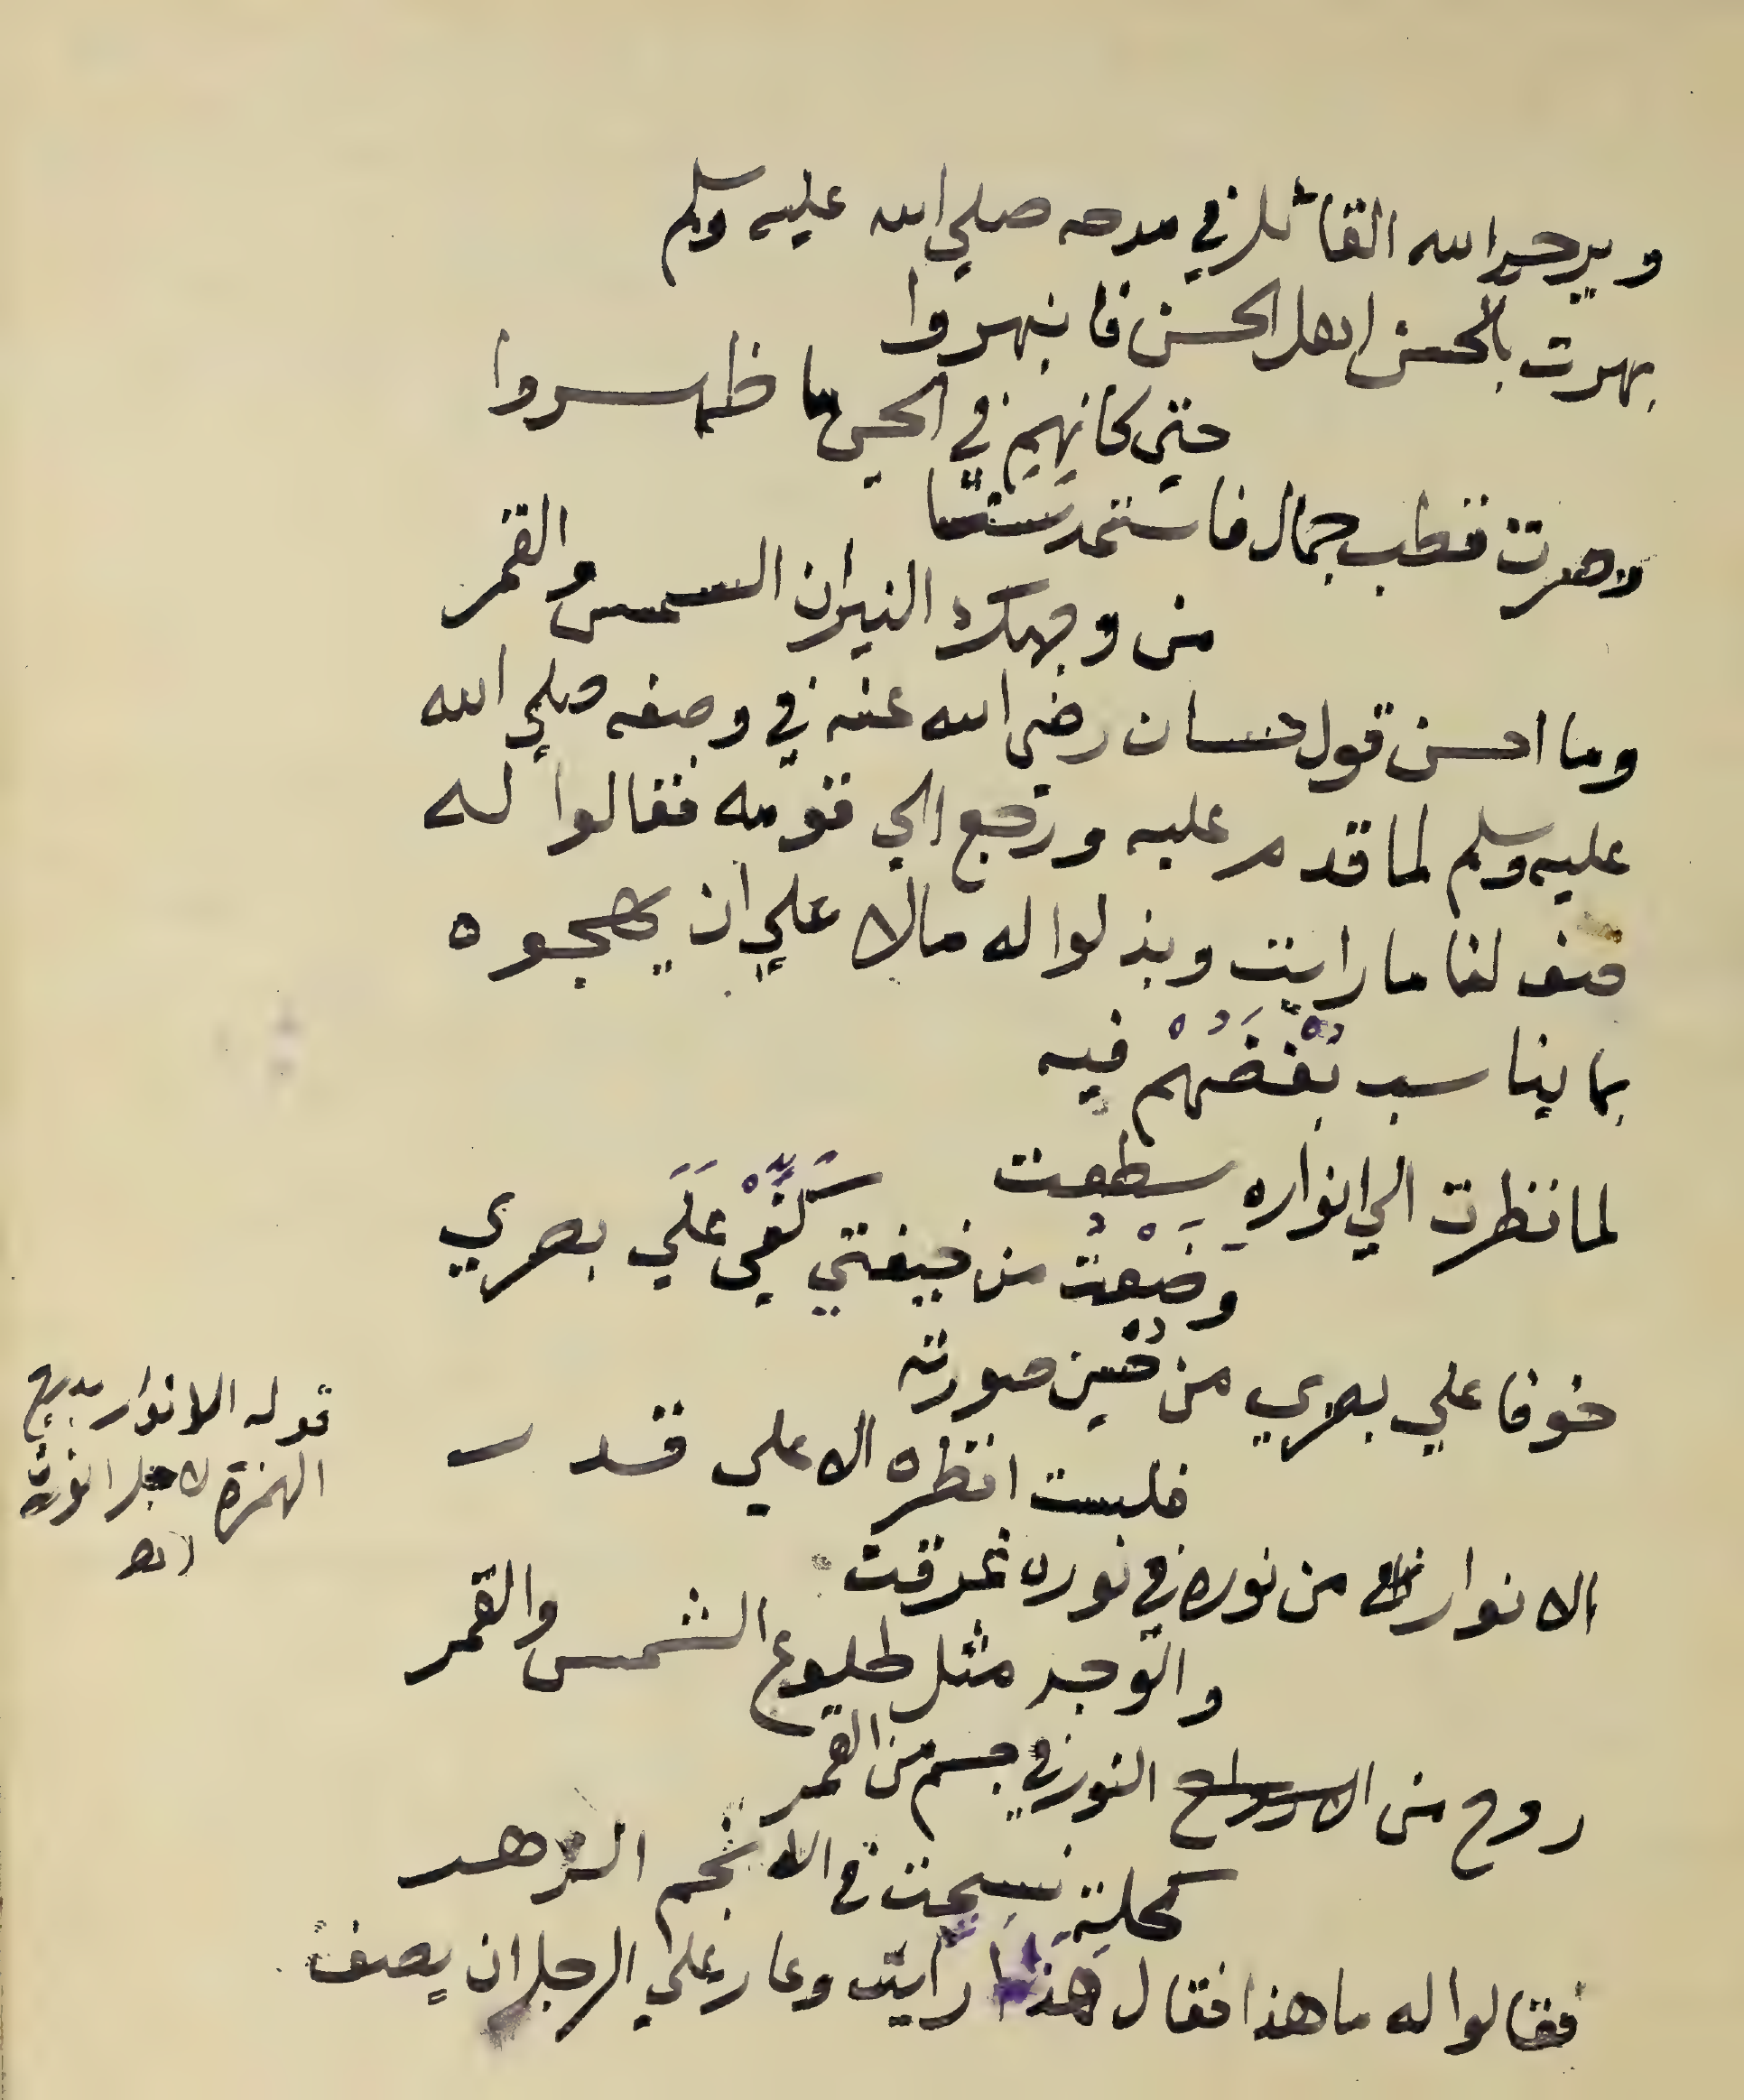 ويرحم الله القائل في مدحه صلي الله عليه وسلم
بهرت بالحسن اهل الحسن فانبهروا
حتي كانهم في الحي ما ظهروا
قطب جمال فاستمد سَنًا
من وجهك النيران الشمس والقمر
وما احسن قول حسان رضي الله عنه في وصفه صلي الله
عليه وسلم لما قدم عليه ورجع الي قومه فقالوا له
صف لنا ما رايت وبذلوا له مالا علي ان يهجوه
بما يناسب بُغْضَهُمْ فيه
لما نظرت الي انواره سطعت
وَضَعْتُ من خيفتي كَفِّيْ عَلَي بصري
خوفا علي بصري من حُسن صورته
فلست انظره الا علي قدر
الانوار من نوره في نوره غرقت
والوجه مثل طلوع الشمس والقمر
روح من النور في جسم من القمر
كحلية نسجت في الانجم الزهر
فقالوا له ما هذا فقال هَذَا رَايت وعار علي الرجل ان يصف
قوله الانوار
الهمزة لاجل الوزن
اهـ